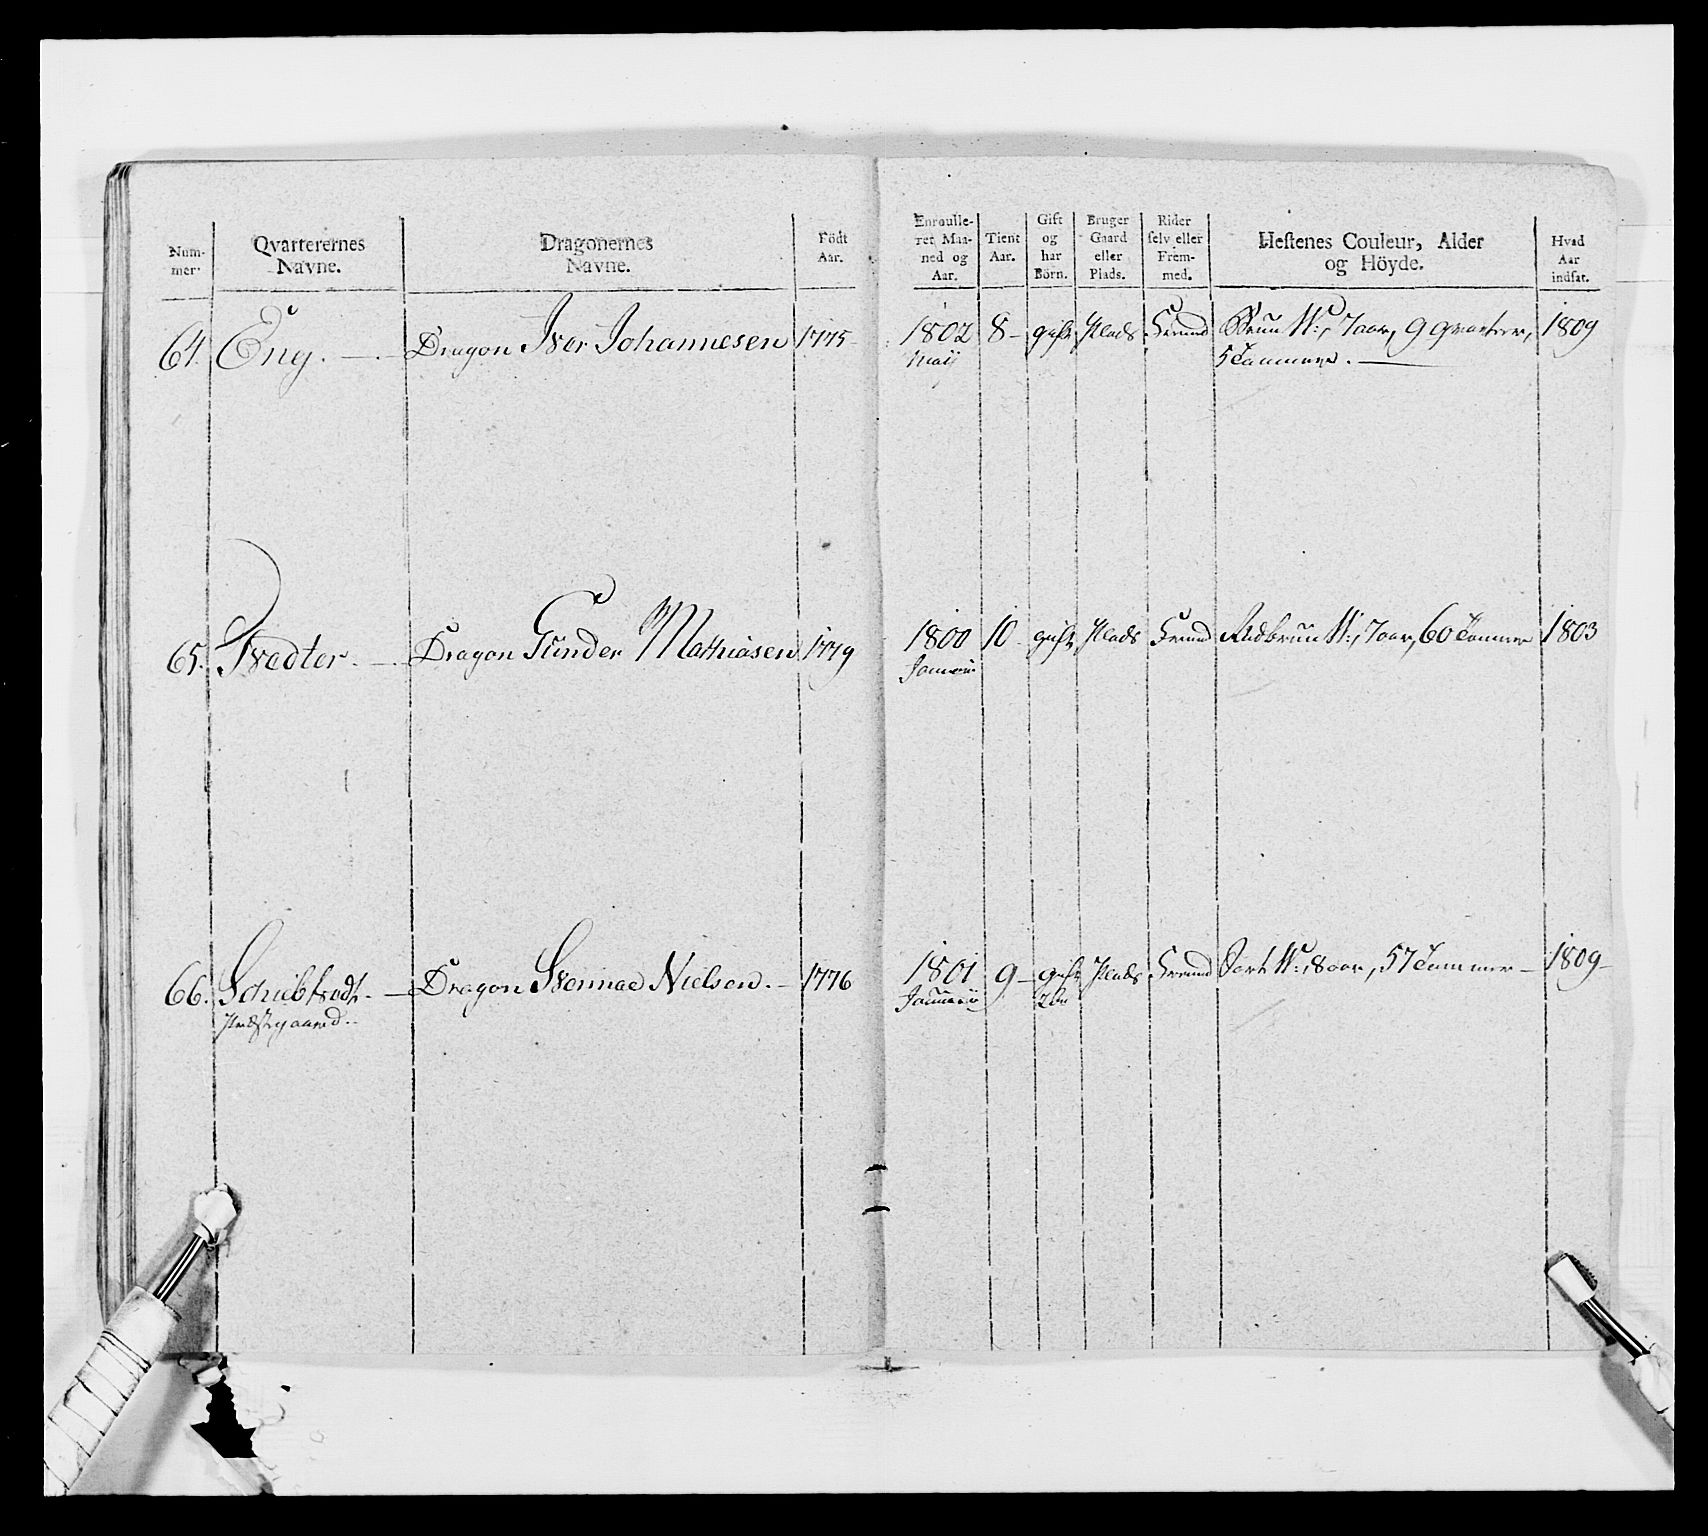 Num-
mer.
Qvarterernes
Navne.
Dragonernes
Navne.
Födt
Aar.
Enroulle-
ret, Maa-
ned og
Aar.
Tient
Aar.
Gift
og
har
Börn.
Bruger
Gaard
eller
Plads.
Rider
selv eller
Frem-
med.
Hestenes Couleur, Alder
og Höyde.
Hvad
Aar
indsat.
64. Eng. Dragon Iver Johannesen 1775 1802 8 gift Plads Fremd Brun W: 7 aar, 9 qvarteer, 1809
Maij 5 Tommer.
65. Tvedter. Dragon Gunder Mathiasen 1779 1800 10 gift Plads Fremd Rødbrun W: 7 aar, 60 Tommer 1803
Januarii
66. Dragon Nielsen. 1776 1801 9 gift Plads Fremd Sort W: 8 aar, 57 Tommer 1809
Præstgaard. Januarii